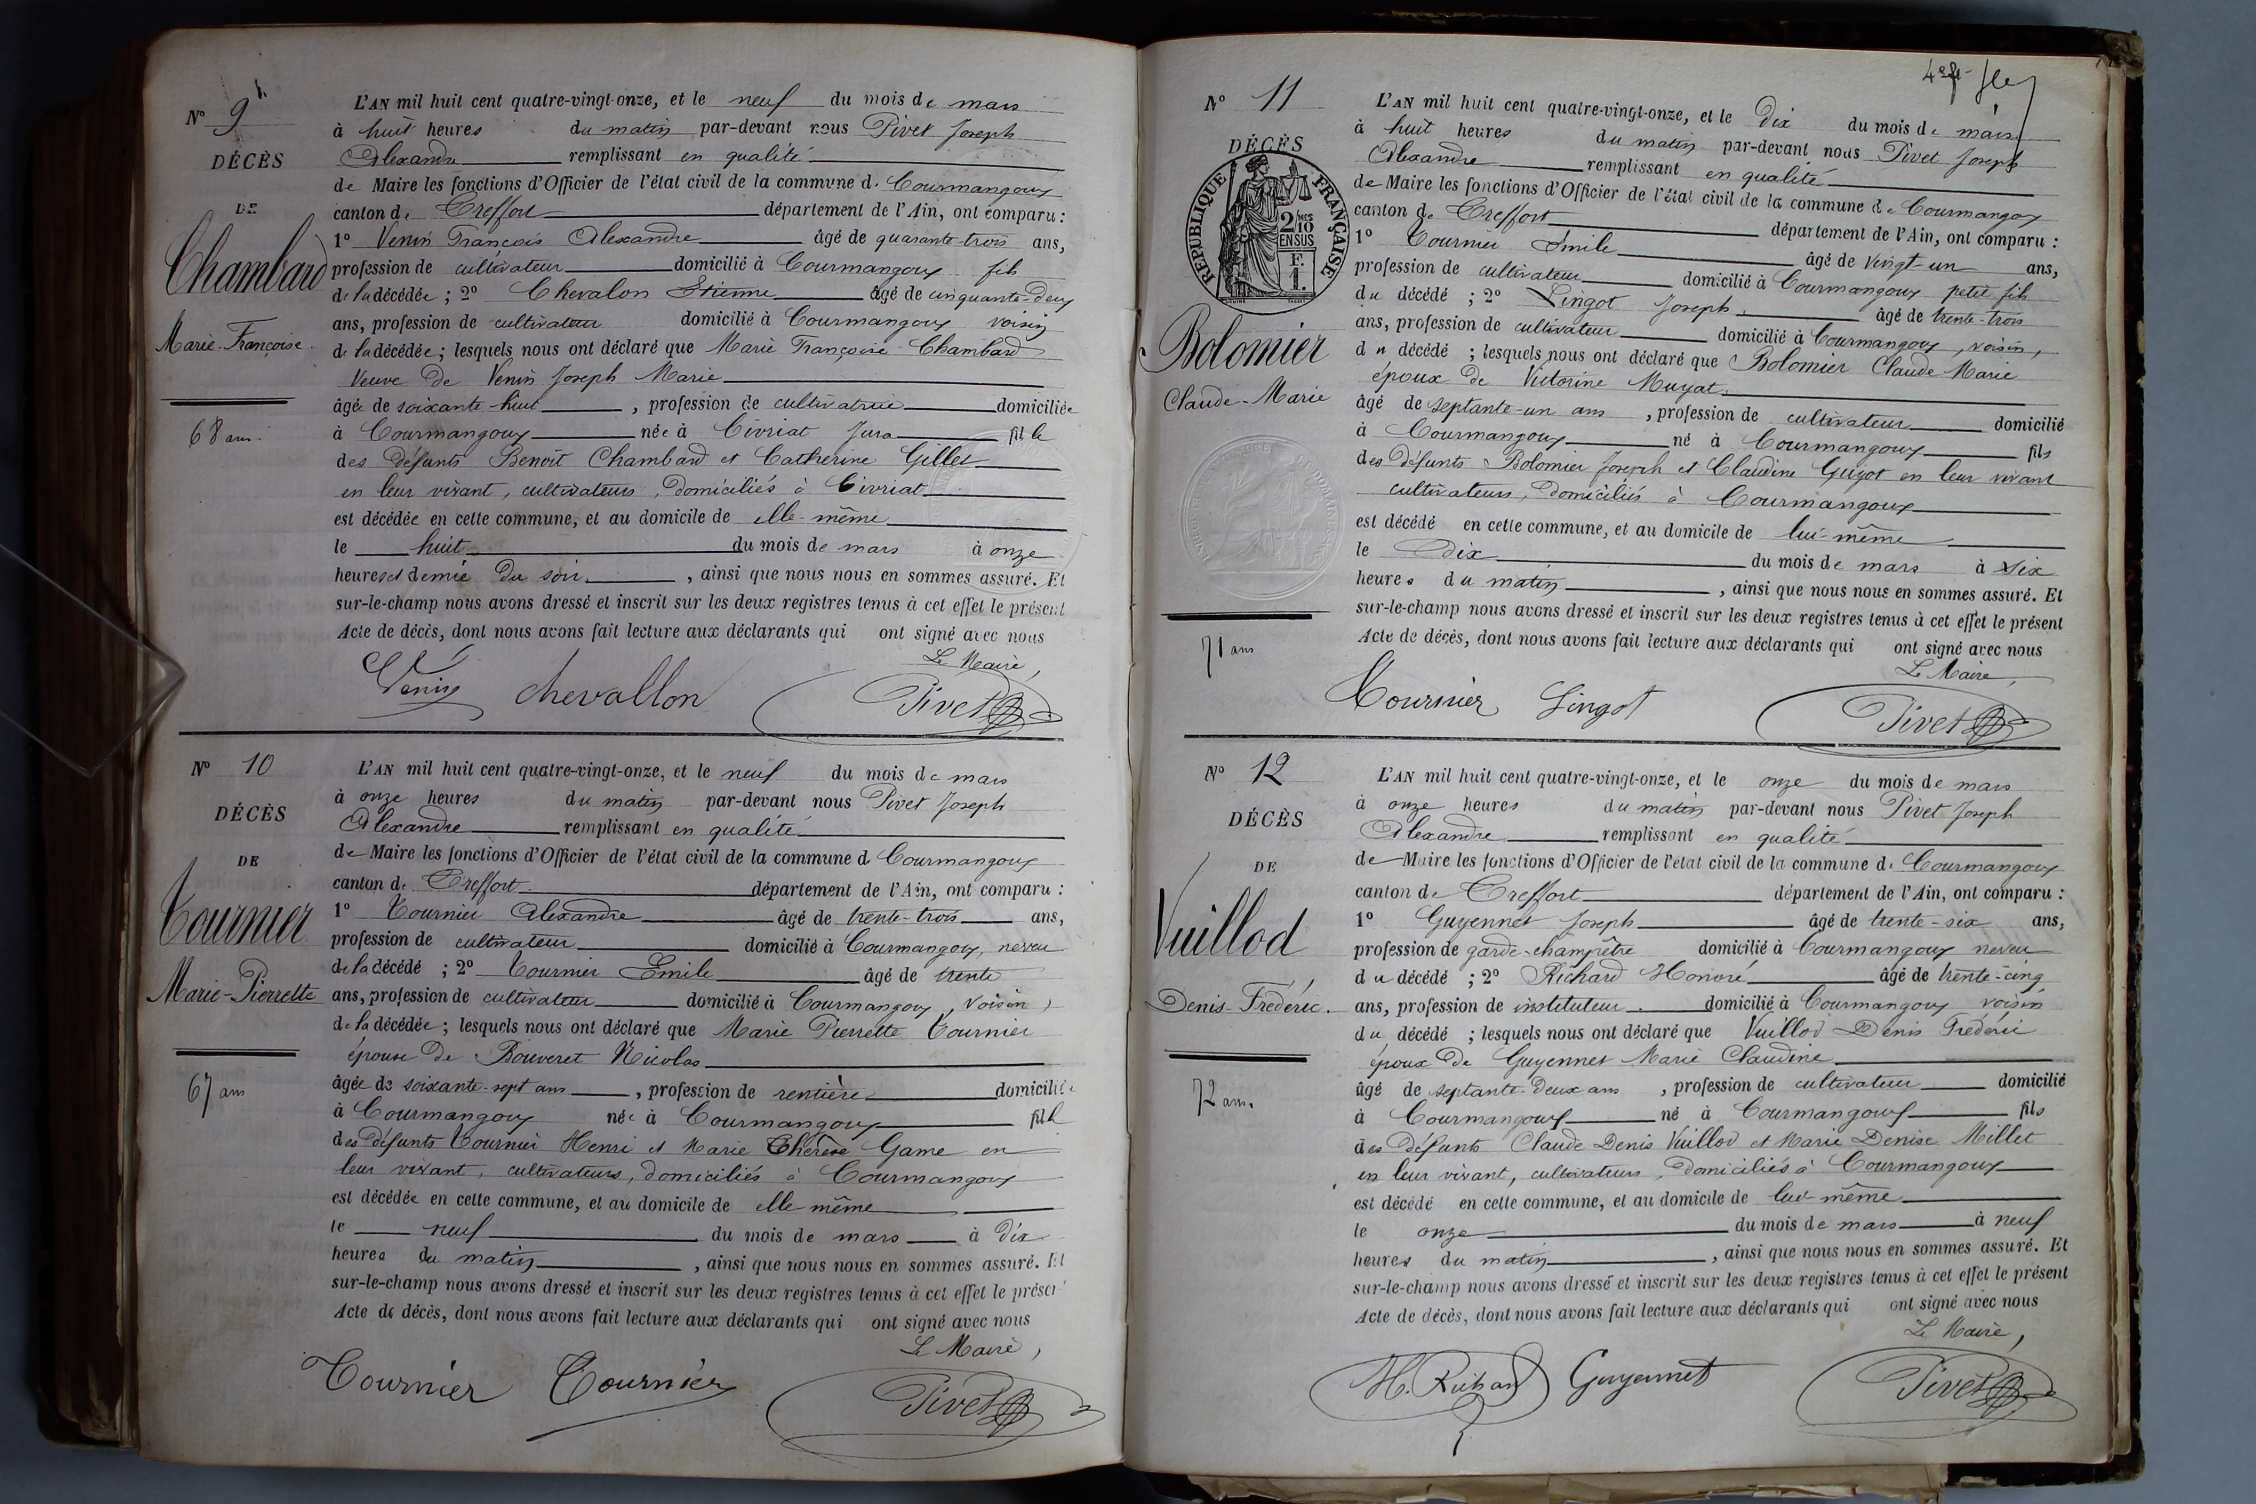 Nº 9
DÉCÈS
DE
Chambard
Marie-Françoise
68 ans
L'AN mil huit cent quatre-vingt-onze, et le neuf du mois de mars
à huit heures du matin par-devant nous Pivet Joseph
Alexandre remplissant en qualité
de Maire les fonctions d'Officier de l'état civil de la commune de Courmangoux
canton de Treffort département de l'Ain, ont comparu :
1º Venin François Alexandre âgé de quarante-trois ans,
profession de cultivateur domicilié à Courmangoux fils
de la décédée ; 2º Chevalon Etienne âgé de cinquante-deux
ans, profession de cultivateur domicilié à Courmangoux voisin
de la décédée ; lesquels nous ont déclaré que Marie Françoise Chambard
Veuve de Venin Joseph Marie
âgée de soixante-huit , profession de cultivatrice domiciliée
à Courmangoux née à Civriat Jura fille
des défunts Benoît Chambard et Catherine Gillet
en leur vivant, cultivateurs, domiciliés à Civriat
est décédée en cette commune, et au domicile de elle-même
le huit du mois de mars à onze
heures et demie du soir , ainsi que nous nous en sommes assuré. Et
sur-le-champ nous avons dressé et inscrit sur les deux registres tenus à cet effet le présent
Acte de décès, dont nous avons fait lecture aux déclarants qui ont signé avec nous
Le Maire,
Venin chevallon Pivet
Nº 10
DÉCÈS
DE
Tournier
Marie-Pierrette
67 ans
L'AN mil huit cent quatre-vingt-onze, et le neuf du mois de mars
à onze heures du matin par-devant nous Pivet Joseph
Alexandre remplissant en qualité
de Maire les fonctions d'Officier de l'état civil de la commune d Courmangoux
canton de Treffort département de l'Ain, ont comparu :
1º Tournier Alexandre âgé de trente-trois ans,
profession de cultivateur domicilié à Courmangoux, neveu
de la décédé ; 2º Tournier Emile âgé de trente
ans, profession de cultivateur domicilié à Courmangoux, voisin
de la décédée ; lesquels nous ont déclaré que Marie Pierrette Tournier
épouse de Bouveret Nicolas
âgée de soixante-sept ans , profession de rentière domiciliée
à Courmangoux née à Courmangoux fille
des défunts Tournier Henri et Marie Thérèse Game en
leur vivant, cultivateurs, domiciliés à Courmangoux
est décédée en cette commune, et au domicile de elle même
le neuf du mois de mars à dix
heures du matin , ainsi que nous nous en sommes assuré. Et
sur-le-champ nous avons dressé et inscrit sur les deux registres tenus à cet effet le présent
Acte de décès, dont nous avons fait lecture aux déclarants qui ont signé avec nous
Le Maire,
Tournier Tournier Pivet
Nº 11
DÉCÈS
RÉPUBLIQUE FRANÇAISE
2/10
EN SUS
F.
1.
Bolomier
Claude-Marie
71 ans
L'AN mil huit cent quatre-vingt-onze, et le dix du mois de mars
à huit heures du matin par-devant nous Pivet Joseph
Alexandre remplissant en qualité
de Maire les fonctions d'Officier de l'état civil de la commune de Courmangoux
canton de Treffort département de l'Ain, ont comparu :
1º Tournier Emile âgé de vingt-un ans,
profession de cultivateur domicilié à Courmangoux petit fils
du décédé ; 2º Lingot Joseph âgé de trente-trois
ans, profession de cultivateur domicilié à Courmangoux, voisin,
du décédé ; lesquels nous ont déclaré que Bolomier Claude Marie
époux de Victorine Muyat
âgé de septante-un ans , profession de cultivateur domicilié
à Courmangoux né à Courmangoux fils
des défunts Bolomier Joseph et Claudine Guyot en leur vivant
cultivateurs, domiciliés à Courmangoux
est décédé en cette commune, et au domicile de lui-même
le dix du mois de mars à six
heures du matin , ainsi que nous nous en sommes assuré. Et
sur-le-champ nous avons dressé et inscrit sur les deux registres tenus à cet effet le présent
Acte de décès, dont nous avons fait lecture aux déclarants qui ont signé avec nous
Le Maire,
Tournier Lingot Pivet
Nº 12
DÉCÈS
DE
Vuillod
Denis-Frédéric.
72 ans.
L'AN mil huit cent quatre-vingt-onze, et le onze du mois de mars
à onze heures du matin par-devant nous Pivet Joseph
Alexandre remplissant en qualité
de Maire les fonctions d'Officier de l'état civil de la commune de Courmangoux
canton de Treffort département de l'Ain, ont comparu :
1º Guyennet Joseph âgé de trente-six ans,
profession de garde-champêtre domicilié à Courmangoux neveu
du décédé ; 2º Richard Honoré âgé de trente-cinq
ans, profession de instituteur domicilié à Courmangoux voisin
du décédé ; lesquels nous ont déclaré que Vuillod Denis Frédéric
époux de Guyennet Marie Claudine
âgé de septante-deux ans , profession de cultivateur domicilié
à Courmangoux né à Courmangoux fils
des défunts Claude Denis Vuillod et Marie Denise Millet
en leur vivant, cultivateurs, domiciliés à Courmangoux
est décédé en cette commune, et au domicile de lui-même
le onze du mois de mars à neuf
heures du matin , ainsi que nous nous en sommes assuré. Et
sur-le-champ nous avons dressé et inscrit sur les deux registres tenus à cet effet le présent
Acte de décès, dont nous avons fait lecture aux déclarants qui ont signé avec nous
Le Maire,
H. Richard Guyennet Pivet